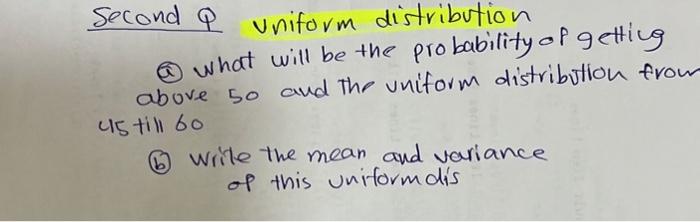 Second Q uniform distribution
ⓐ what will be the probability of getting
above 50 and the uniform distribution from
45 till 60
ⓑ write the mean and variance
of this uniform dis